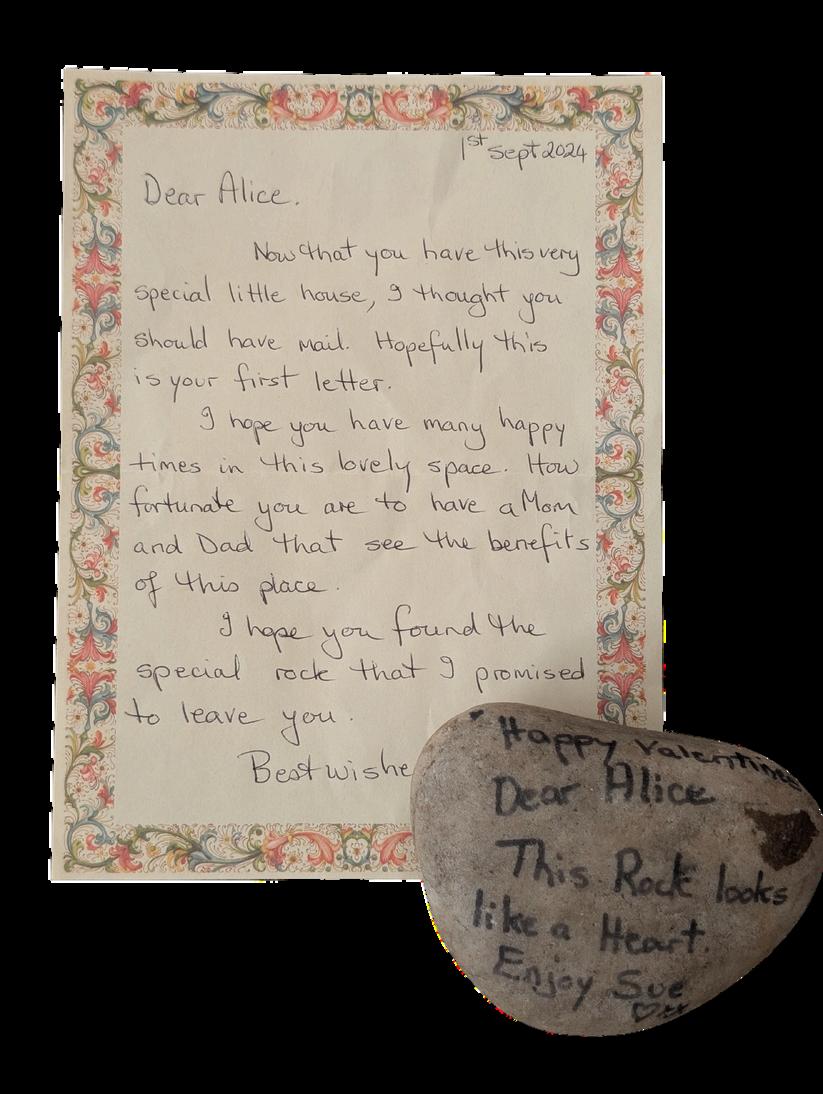 1st Sept 2024
Dear Alice.
Now that you have this very
special little house, I thought you
should have mail. Hopefully this
is your first letter.
I hope you have many happy
times in this lovely space. How
fortunate you are to have a Mom
and Dad that see the benefits
of this place.
I hope you found the
special rock that I promised
to leave you.
Best wishe
Happy Valentine
Dear Alice
This Rock looks
like a Heart.
Enjoy Sue